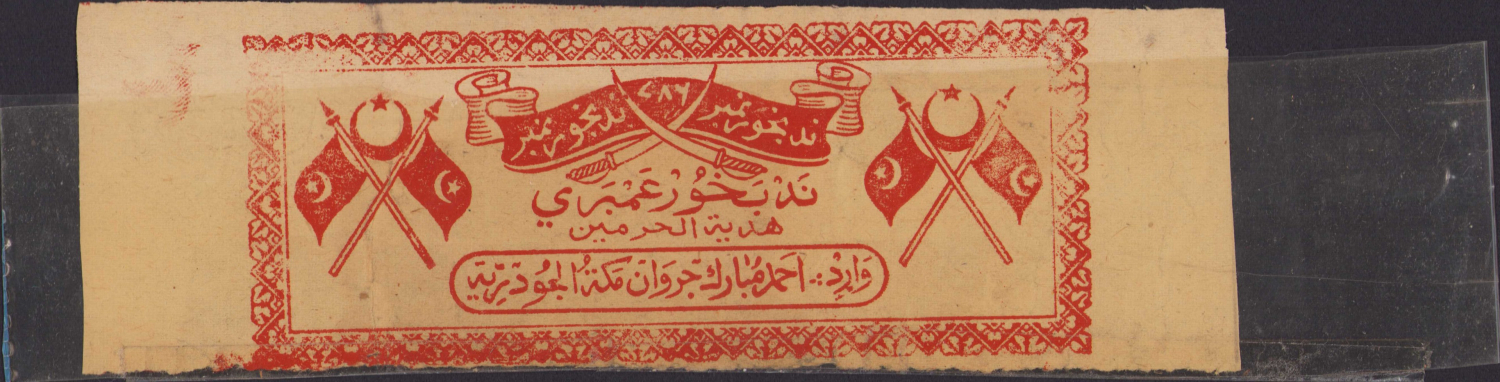 ند بخور نمبر ٧٨٦ ند بخور نمبر
نَدْ بَخُوْر عَمْبَرِي
هدية الحرمين
وَارِدْ: احمد مُبارك جروَان مَكةُ الجُودَرِّية